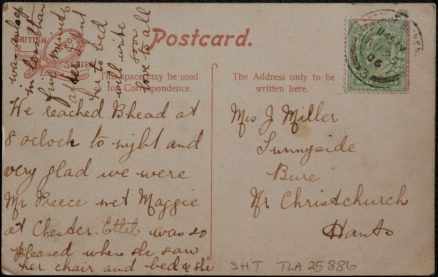 Postcard.
BRITISH
SERIES
This space may be used
for Correspondence.
The Address only to be
written here.
We reached Bhead at
8 oclock to night and
very glad we were
Mr Preece met Maggie
at Chester. Ethel was so
pleased when she saw
her chair and bed & she
was asleep
in less than
five
to bed
will write
soon
love to all
Mrs J Miller
Sunnyside
Bure
Nr Christchurch
Hants
SHT TLA 25886